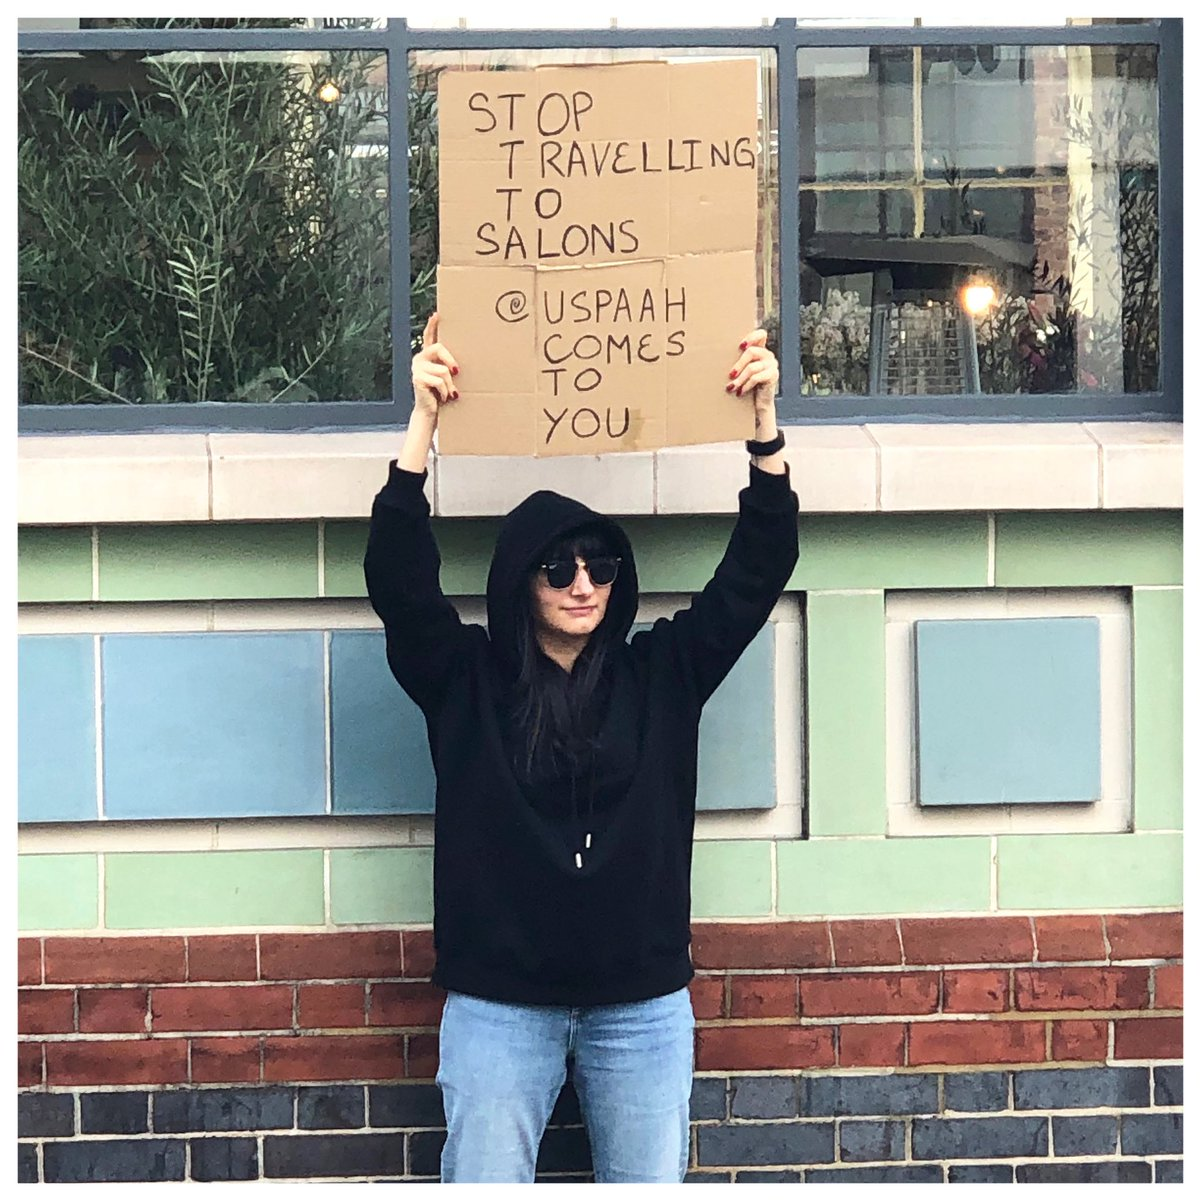 STOP
TRAVELLING
TO
SALONS
@USPAAH
COMES
TO
YOU